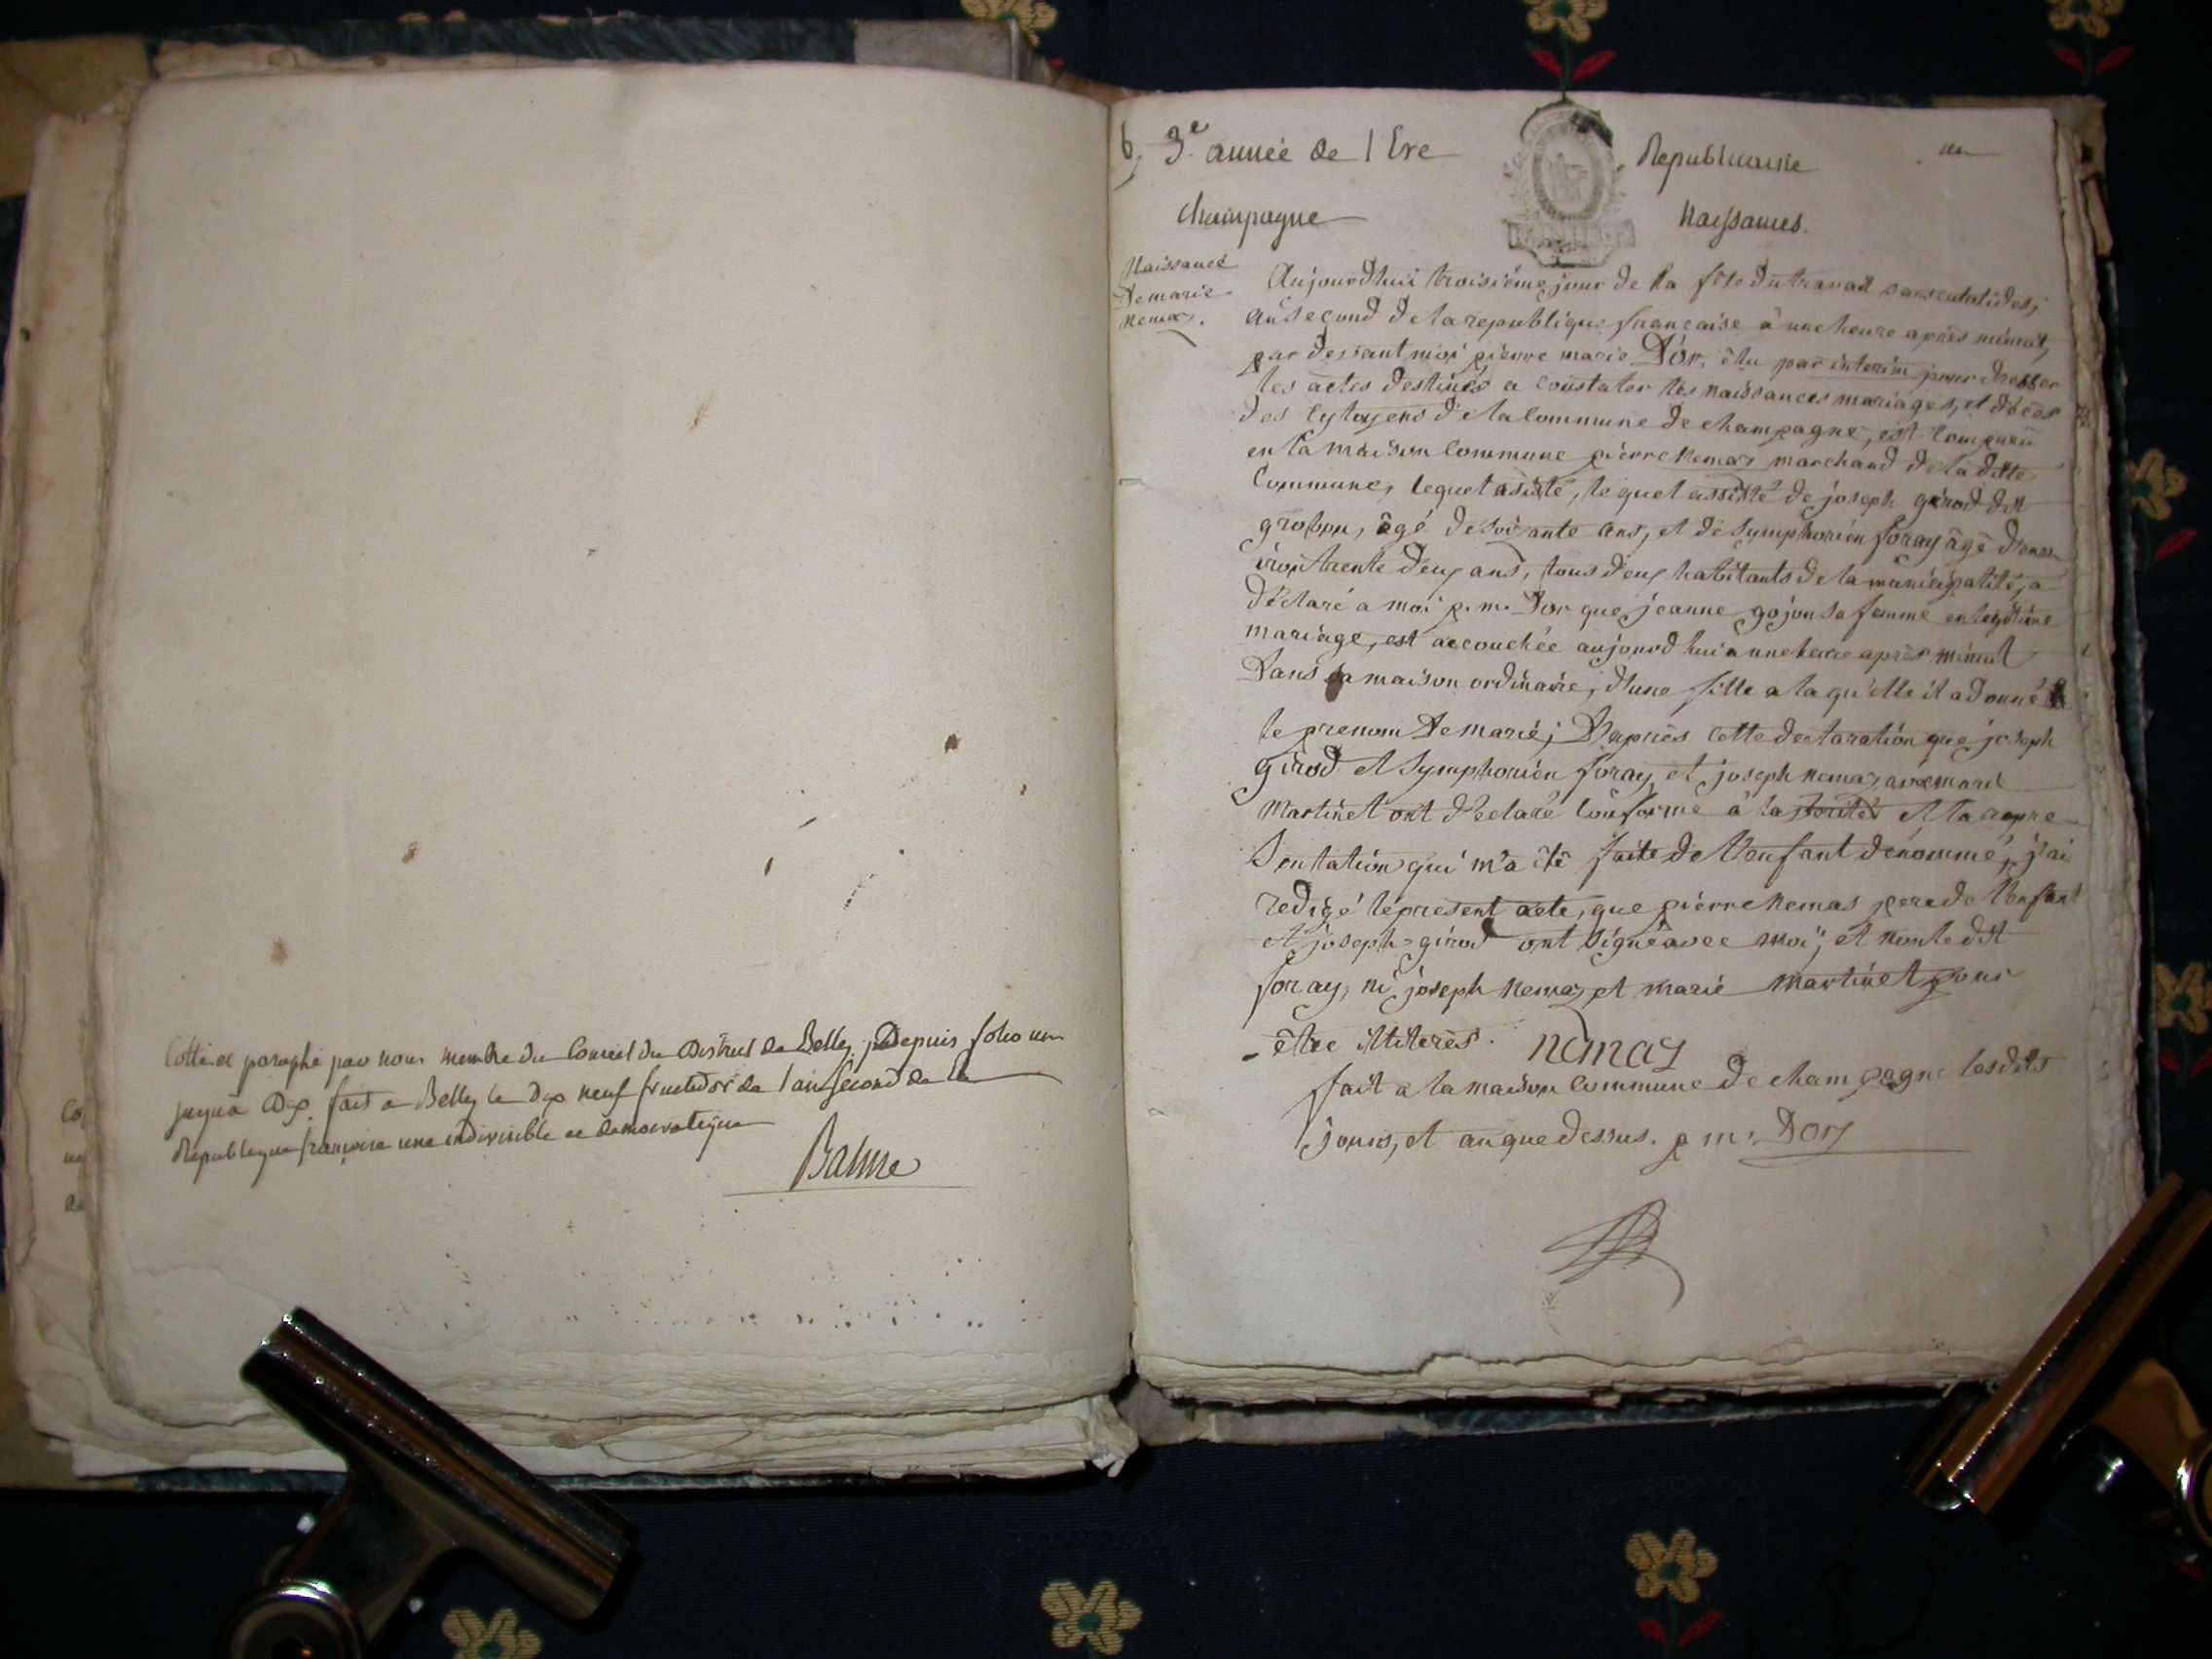 Cotté et paraphé par nous membre du Conseil du District de Belley Depuis folio un
jusqua Dix. fait a Belley le Dix neuf fructidor de l'an Second de la
Republique françoise une indivisible et democratique
Balme
6, 3e. année de l Ere Republicaine un
Champagne Naissances.
Naissance
De marie
Nemoz.
Aujourdhui troisiéme jour de la féte du travail
an second de la republique francaise à une heure après minuit,
par devant moi pierre marie Dor, élu par interim pour dresser
les actes destinés a constater les naissances mariages, et décès
des Cytoyens de la Commune de champagne, est comparu
en la maison Commune pierre Nemoz marchand de la ditte
Commune, lequel assisté, le quel assisté de joseph girod dit
grobon, âgé de soixante ans, et de Symphorien foray âgé d'envi
iron trente deux ans, tous deux habitants de la municipalité, a
déclaré a moi p. m. Dor que jeanne gojon sa femme en legitime
mariage, est accouchée aujourd hui a une heure après minuit
Dans sa maison ordinaire, d'une fille a la qu'elle il a donné
le prenom De marie; D'après cette declaration que joseph
girod et Symphorien foray, et joseph nemoz
Martinet ont déclaré conforme à la vérité et la repre
sentation qui m'a été faite de l'enfant dénommé, j'ai
redigé le present acte, que pierre Nemas pere de l'enfant
et joseph = girod ont signé avec moi; et non le dit
foray, ni joseph Nemoz et marie Martinet pour
être illiterés. nemaz
fait a la maison commune de champagne les dits
jours, et an que dessus. p m. Dor